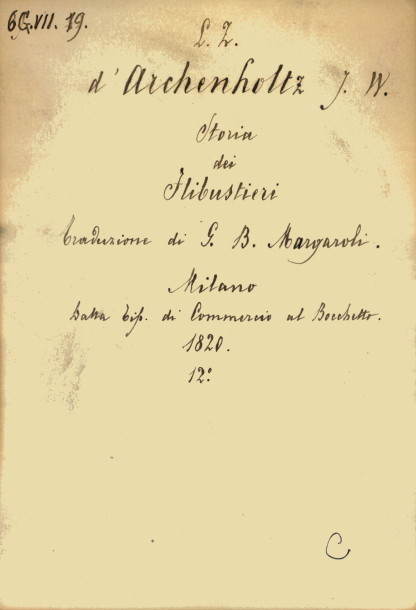 6G.VII.79.
L. Z.
d'Archenholtz J. W.
Storia
dei
Flibustieri
Traduzione di G. B. Margaroli.
Milano
Dalla Tip. di Commercio al Bocchetto.
1820.
12º
C